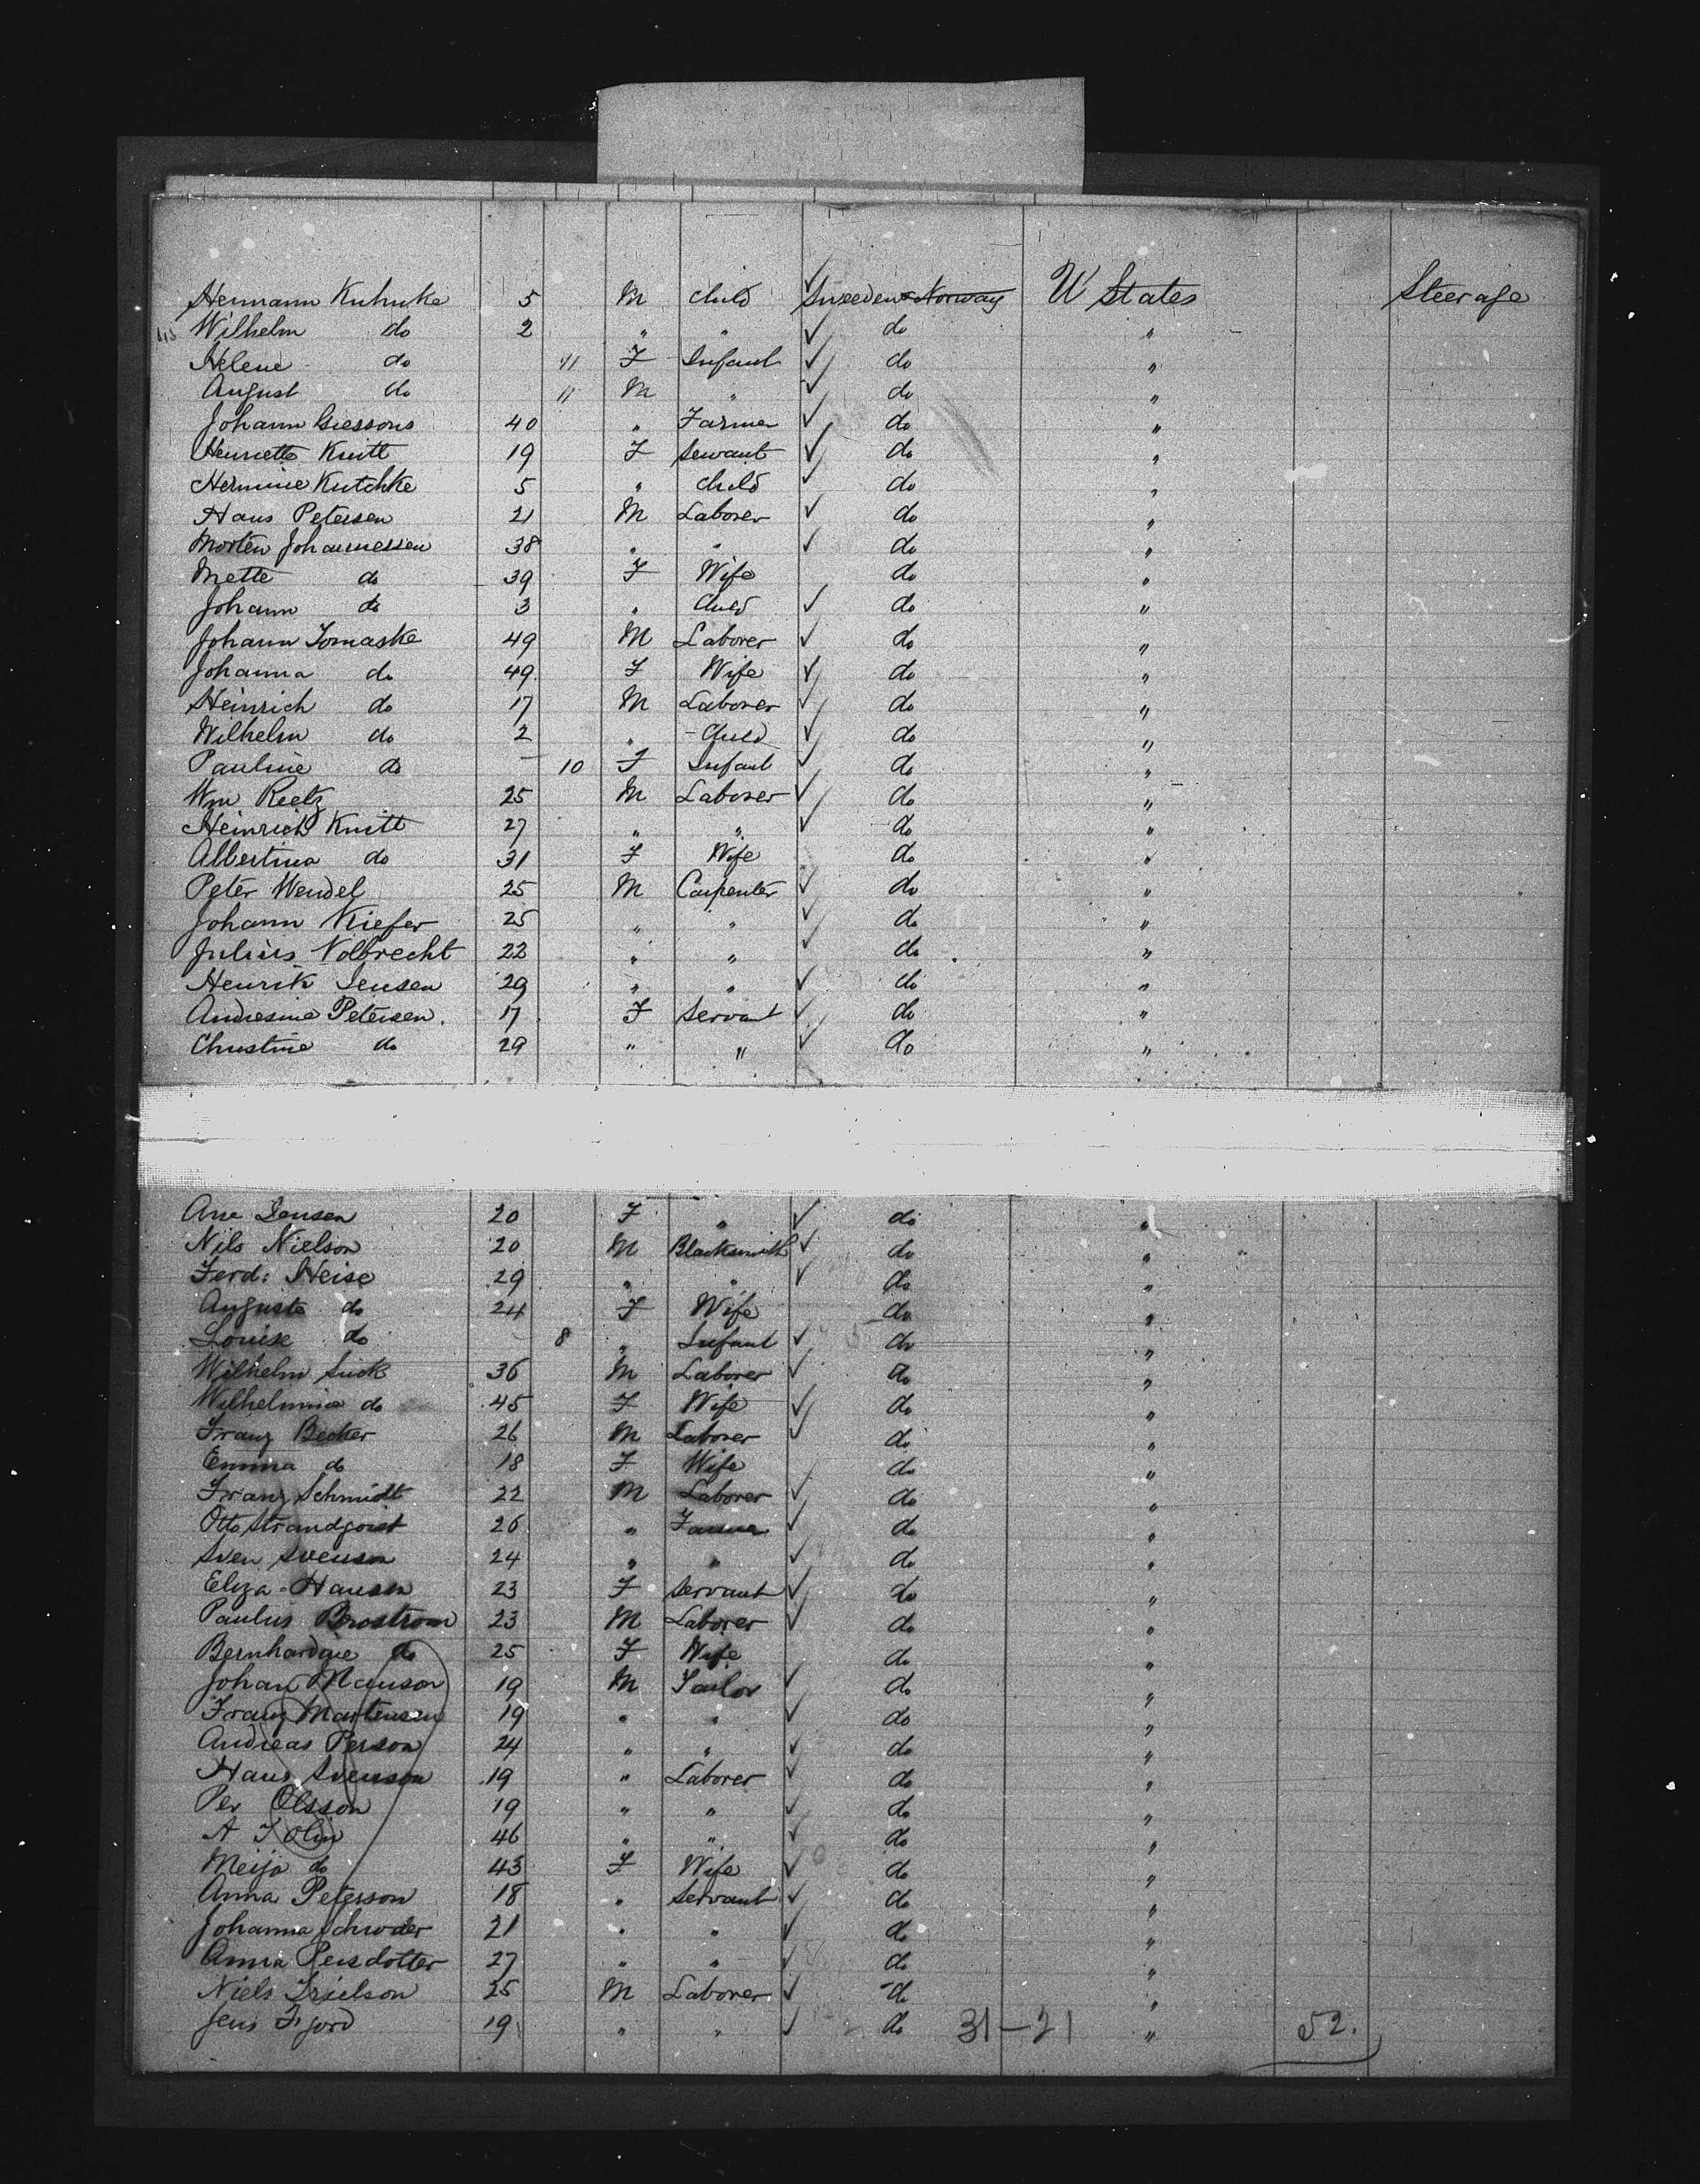 Hermann Kuhnke 5 M child Sweeden & Norway U States Steerage
Wilhelm do 2 " " do "
Helene do 11 F Infant do "
August do 11 M " do "
Johann Giessons 40 " Farmer do "
Henriette Knitt 19 F Servant do "
Hermine Kutchke 5 " child do "
Hans Petersen 21 M Laborer do "
Morten Johannessen 38 " " do "
Mette do 39 F Wife do "
Johann do 3 " Child do "
Johann Tomaske 49 M Laborer do "
Johanna do 49 F Wife do "
Heinrich do 17 M Laborer do "
Wilhelm do 2 " Child do "
Pauline do 10 F Infant do "
Wm Rietz 25 M Laborer do "
Heinrich Knitt 27 " " do "
Albertina do 31 F Wife do "
Peter Wendel 25 M Carpenter do "
Johann Kiefer 25 " " do "
Julius Volbrecht 22 " " do "
Henrik Jensen 29 " " do "
Andresine Petersen 17 F Servant do "
Christine do 29 " " do "
Ane Jensen 20 F " do "
Nils Nielson 20 M Blacksmith do "
Ferd: Heise 29 " " do "
Auguste do 24 F Wife do "
Louise do 8 " Infant do "
Wilhelm Suok 36 M Laborer do "
Wilhelmine do 45 F Wife do "
Franz Becker 26 M Laborer do "
Emma do 18 F Wife do "
Franz Schmidt 22 M Laborer do "
Otto Strandqvist 26 " Farmer do "
Sven Svenson 24 " " do "
Eliza Hansen 23 F Servant do "
Paulus Brostrom 23 M Laborer do "
Bernhardine do 25 F Wife do "
Johan Manson 19 M Tailor do "
Franz Martensen 19 " " do "
Andreas Person 24 " " do "
Hans Svenson 19 " Laborer do "
Per Olsson 19 " " do "
A J Olin 46 " " do "
Meija do 43 F Wife do "
Anna Peterson 18 " Servant do "
Johanna Schroder 21 " " do "
Anna Persdotter 27 " " do "
Niels Irielson 25 M Laborer do "
Jens Fjord 19 " " do 31-21 " 52.